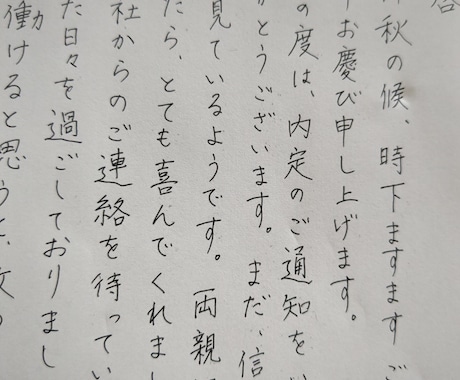 秋の候、時下ますますご
お慶び申し上げます。
の度は、内定のご通知をい
とうございます。まだ、信
見ているようです。両親
たら、とても喜んでくれまし
社からのご連絡を待ってい
た日々を過ごしておりまし
働けると思うと、